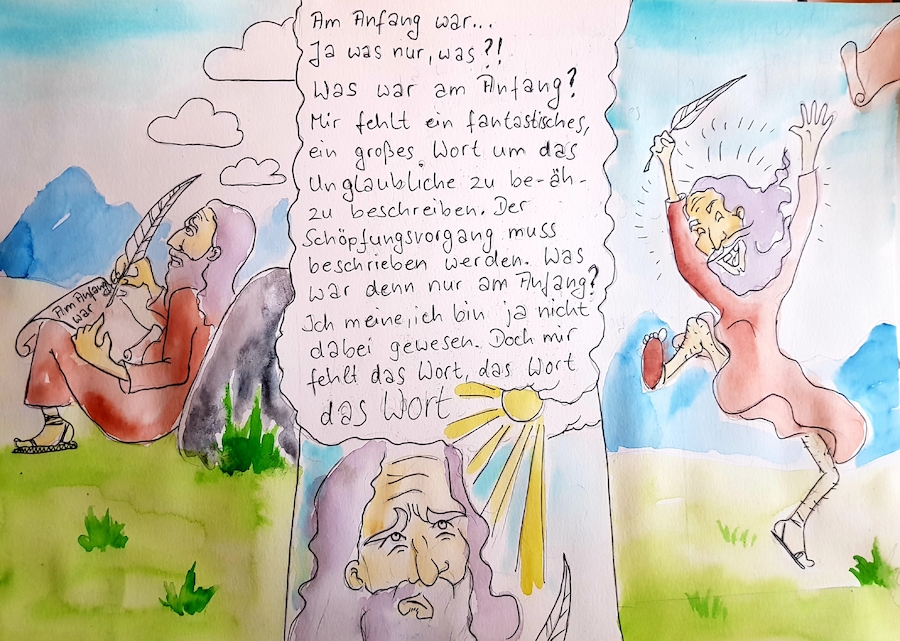 Am Anfang
war
Am Anfang war...
Ja was nur, was?!
Was war am Anfang?
Mir fehlt ein fantastisches,
ein großes Wort um das
Unglaubliche zu be-äh-
zu beschreiben. Der
Schöpfungsvorgang muss
beschrieben werden. Was
war denn nur am Anfang?
Ich meine, ich bin ja nicht
dabei gewesen. Doch mir
fehlt das Wort, das Wort
das Wort